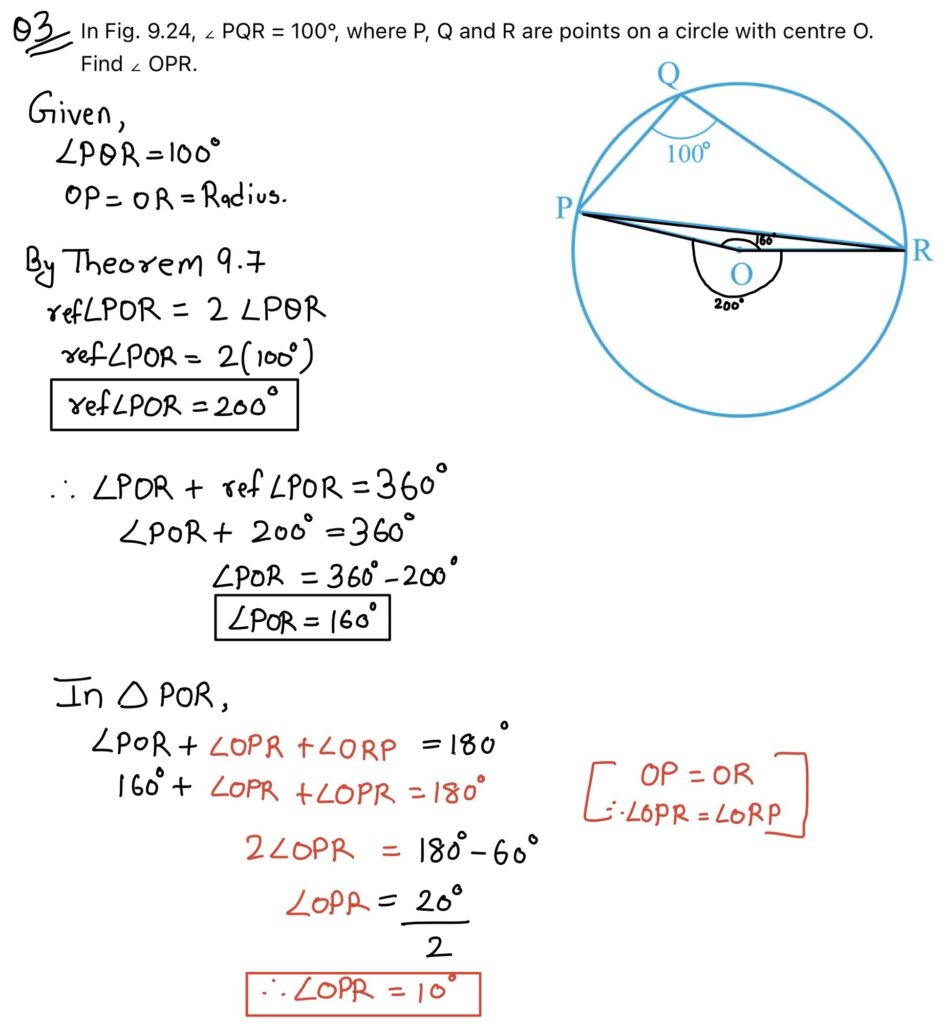 Q3 In Fig. 9.24, ∠ PQR = 100°, where P, Q and R are points on a circle with centre O.
Find ∠ OPR.
Given,
∠PQR = 100°
OP = OR = Radius.
By Theorem 9.7
ref∠POR = 2 ∠PQR
ref∠POR = 2(100°)
ref∠POR = 200°
∴ ∠POR + ref ∠POR = 360°
∠POR + 200° = 360°
∠POR = 360° - 200°
∠POR = 160°
In △ POR,
∠POR + ∠OPR + ∠ORP = 180°
160° + ∠OPR + ∠OPR = 180°
2∠OPR = 180° - 60°
∠OPR = 20°
2
∴ ∠OPR = 10°
[ OP = OR
∴ ∠OPR = ∠ORP ]
Q
100°
P
160°
R
O
200°